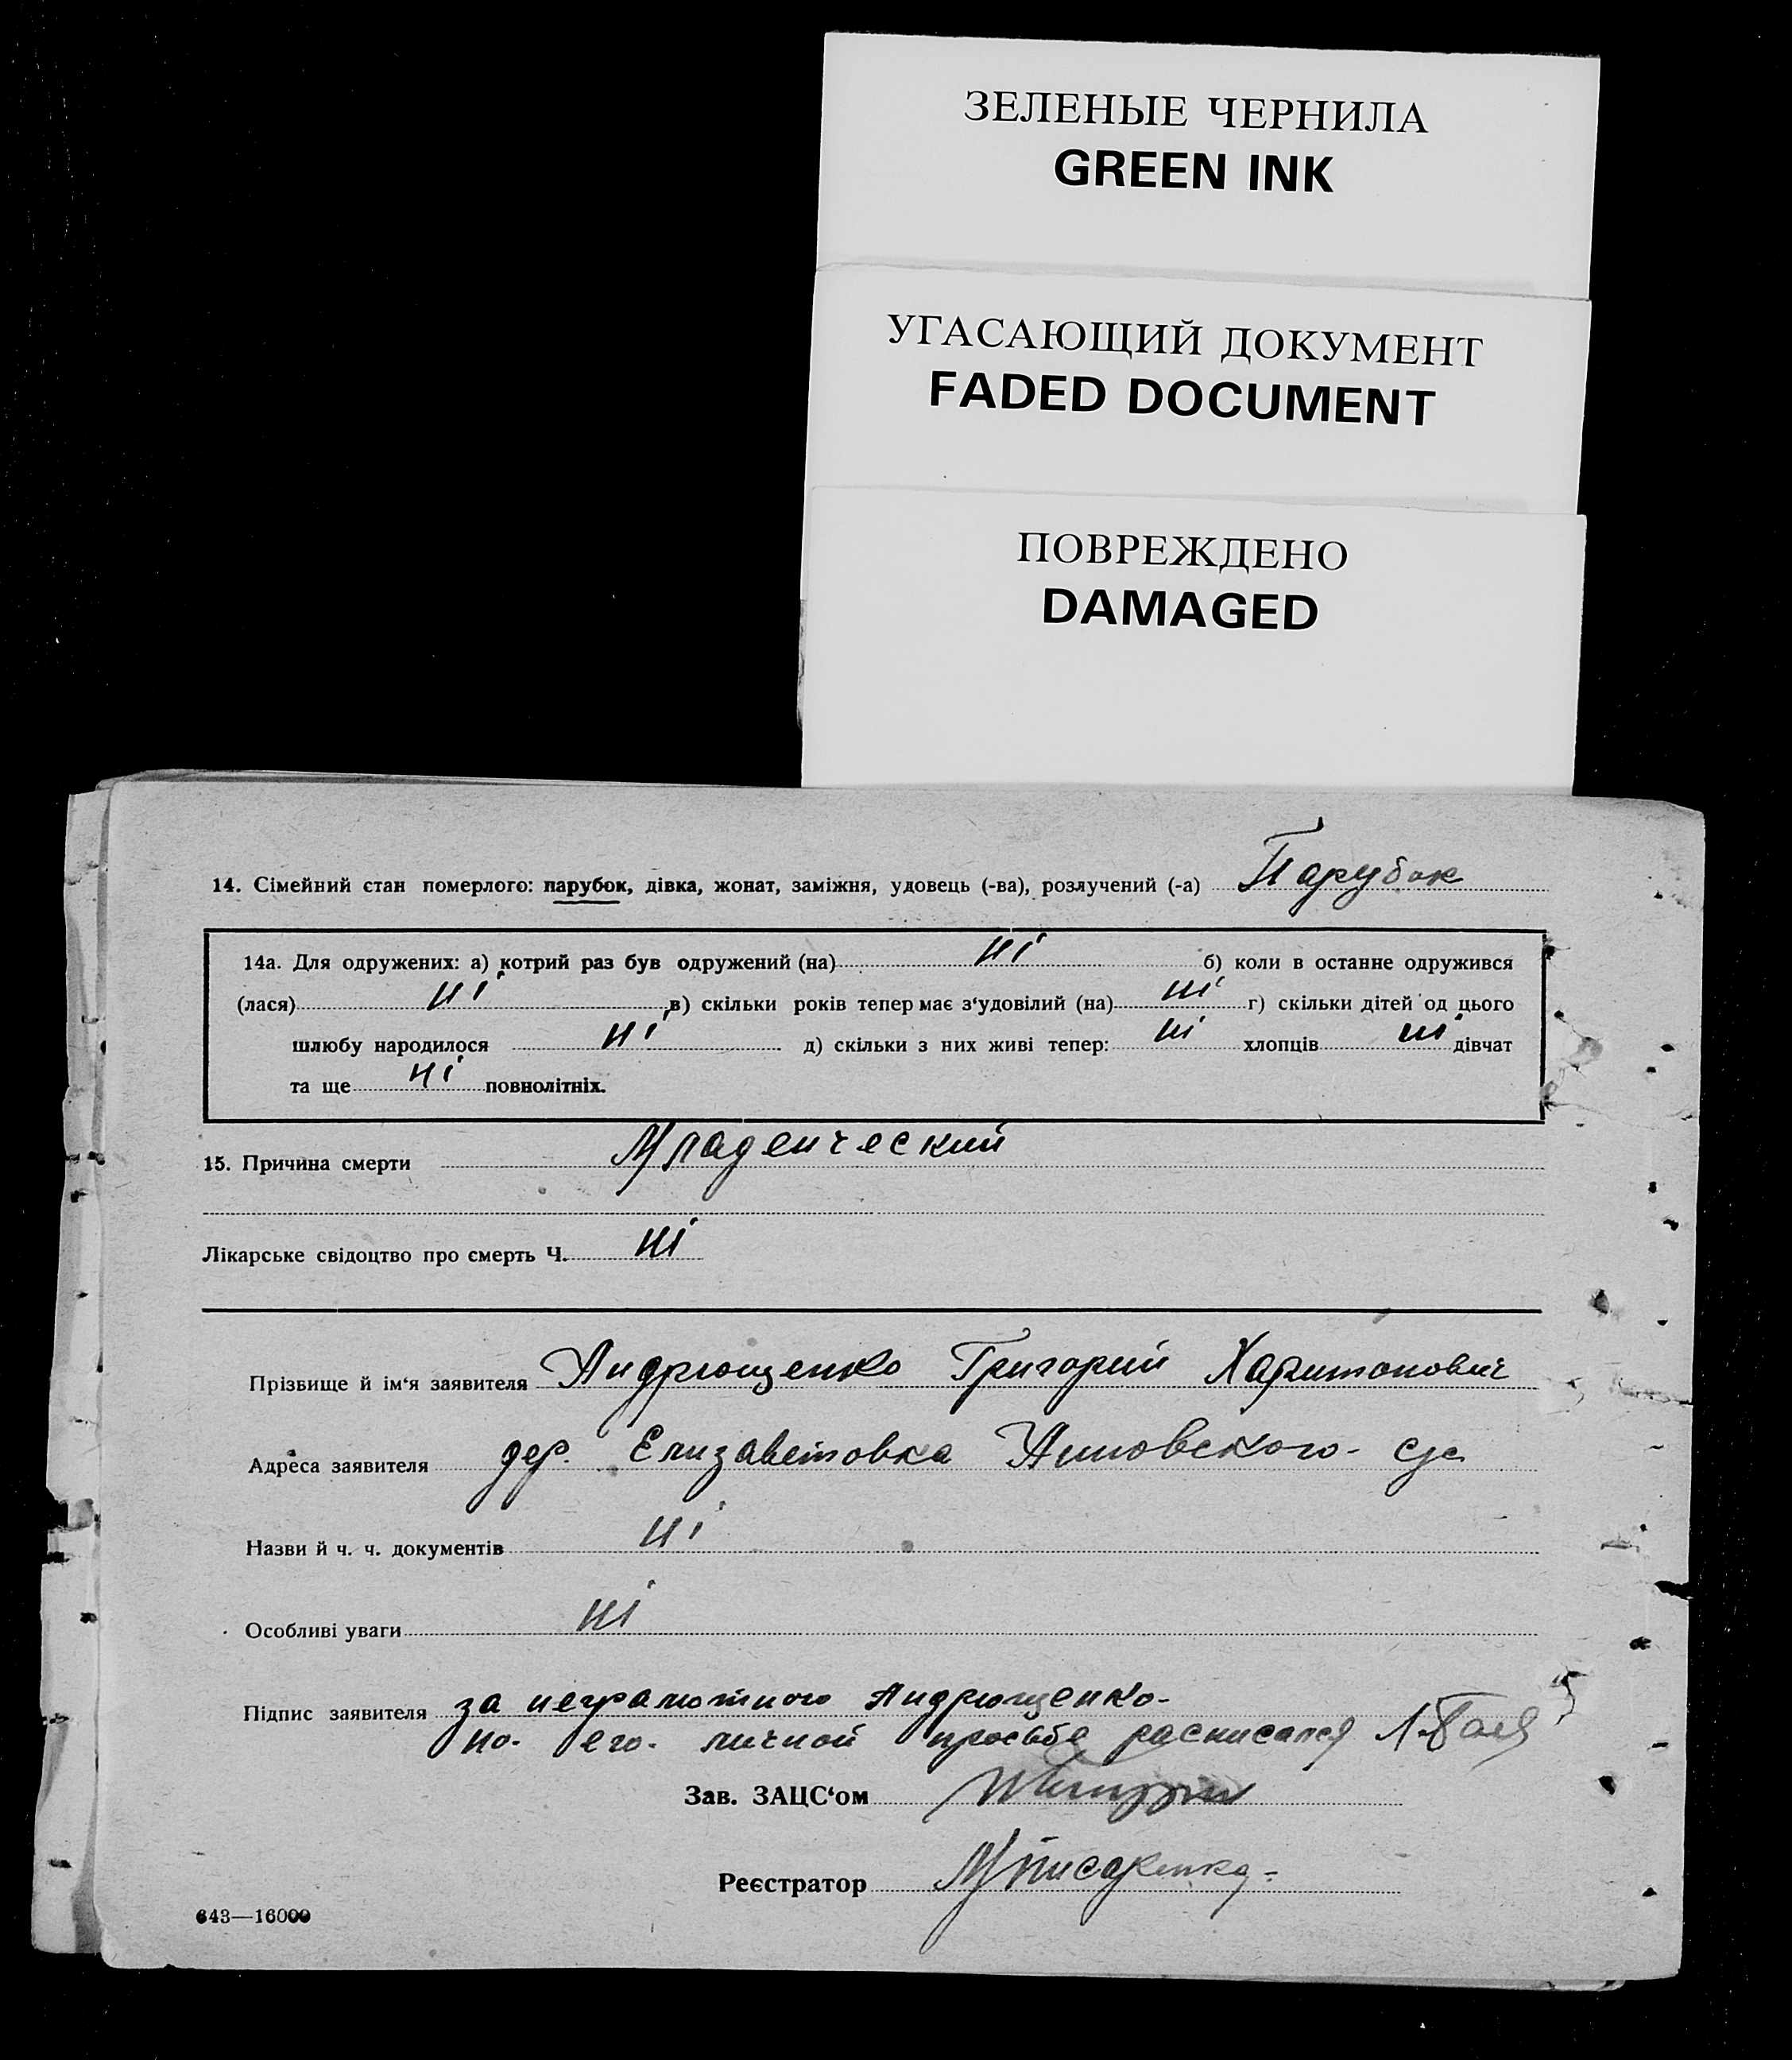 ЗЕЛЕНЫЕ ЧЕРНИЛА
GREEN INK
УГАСАЮЩИЙ ДОКУМЕНТ
FADED DOCUMENT
ПОВРЕЖДЕНО
DAMAGED
14. Сімейний стан померлого: парубок, дівка, жонат, заміжня, удовець (-ва), розлучений (-а) Парубок
14а. Для одружених: а) котрий раз був одружений (на) ні б) коли в останне одружився
(лася) ні в) скільки років тепер має з‘удовілий (на) ні г) скільки дітей од цього
шлюбу народилося ні д) скільки з них живі тепер: ні хлопців ні дівчат
та ще ні повнолітніх.
15. Причина смерти Младенческий
Лікарське свідоцтво про смерть Ч. ні
Прізвище й ім‘я заявителя Андрющенко Григорий Харитонович
Адреса заявителя дер. Елизаветовка с/с
Назви й ч. ч. документів ні
Особливі уваги ні
Підпис заявителя за неграмотного Андрющенко-
по его личной просьбе расписался
Зав. ЗАЦС‘ом
Реєстратор
643—16000